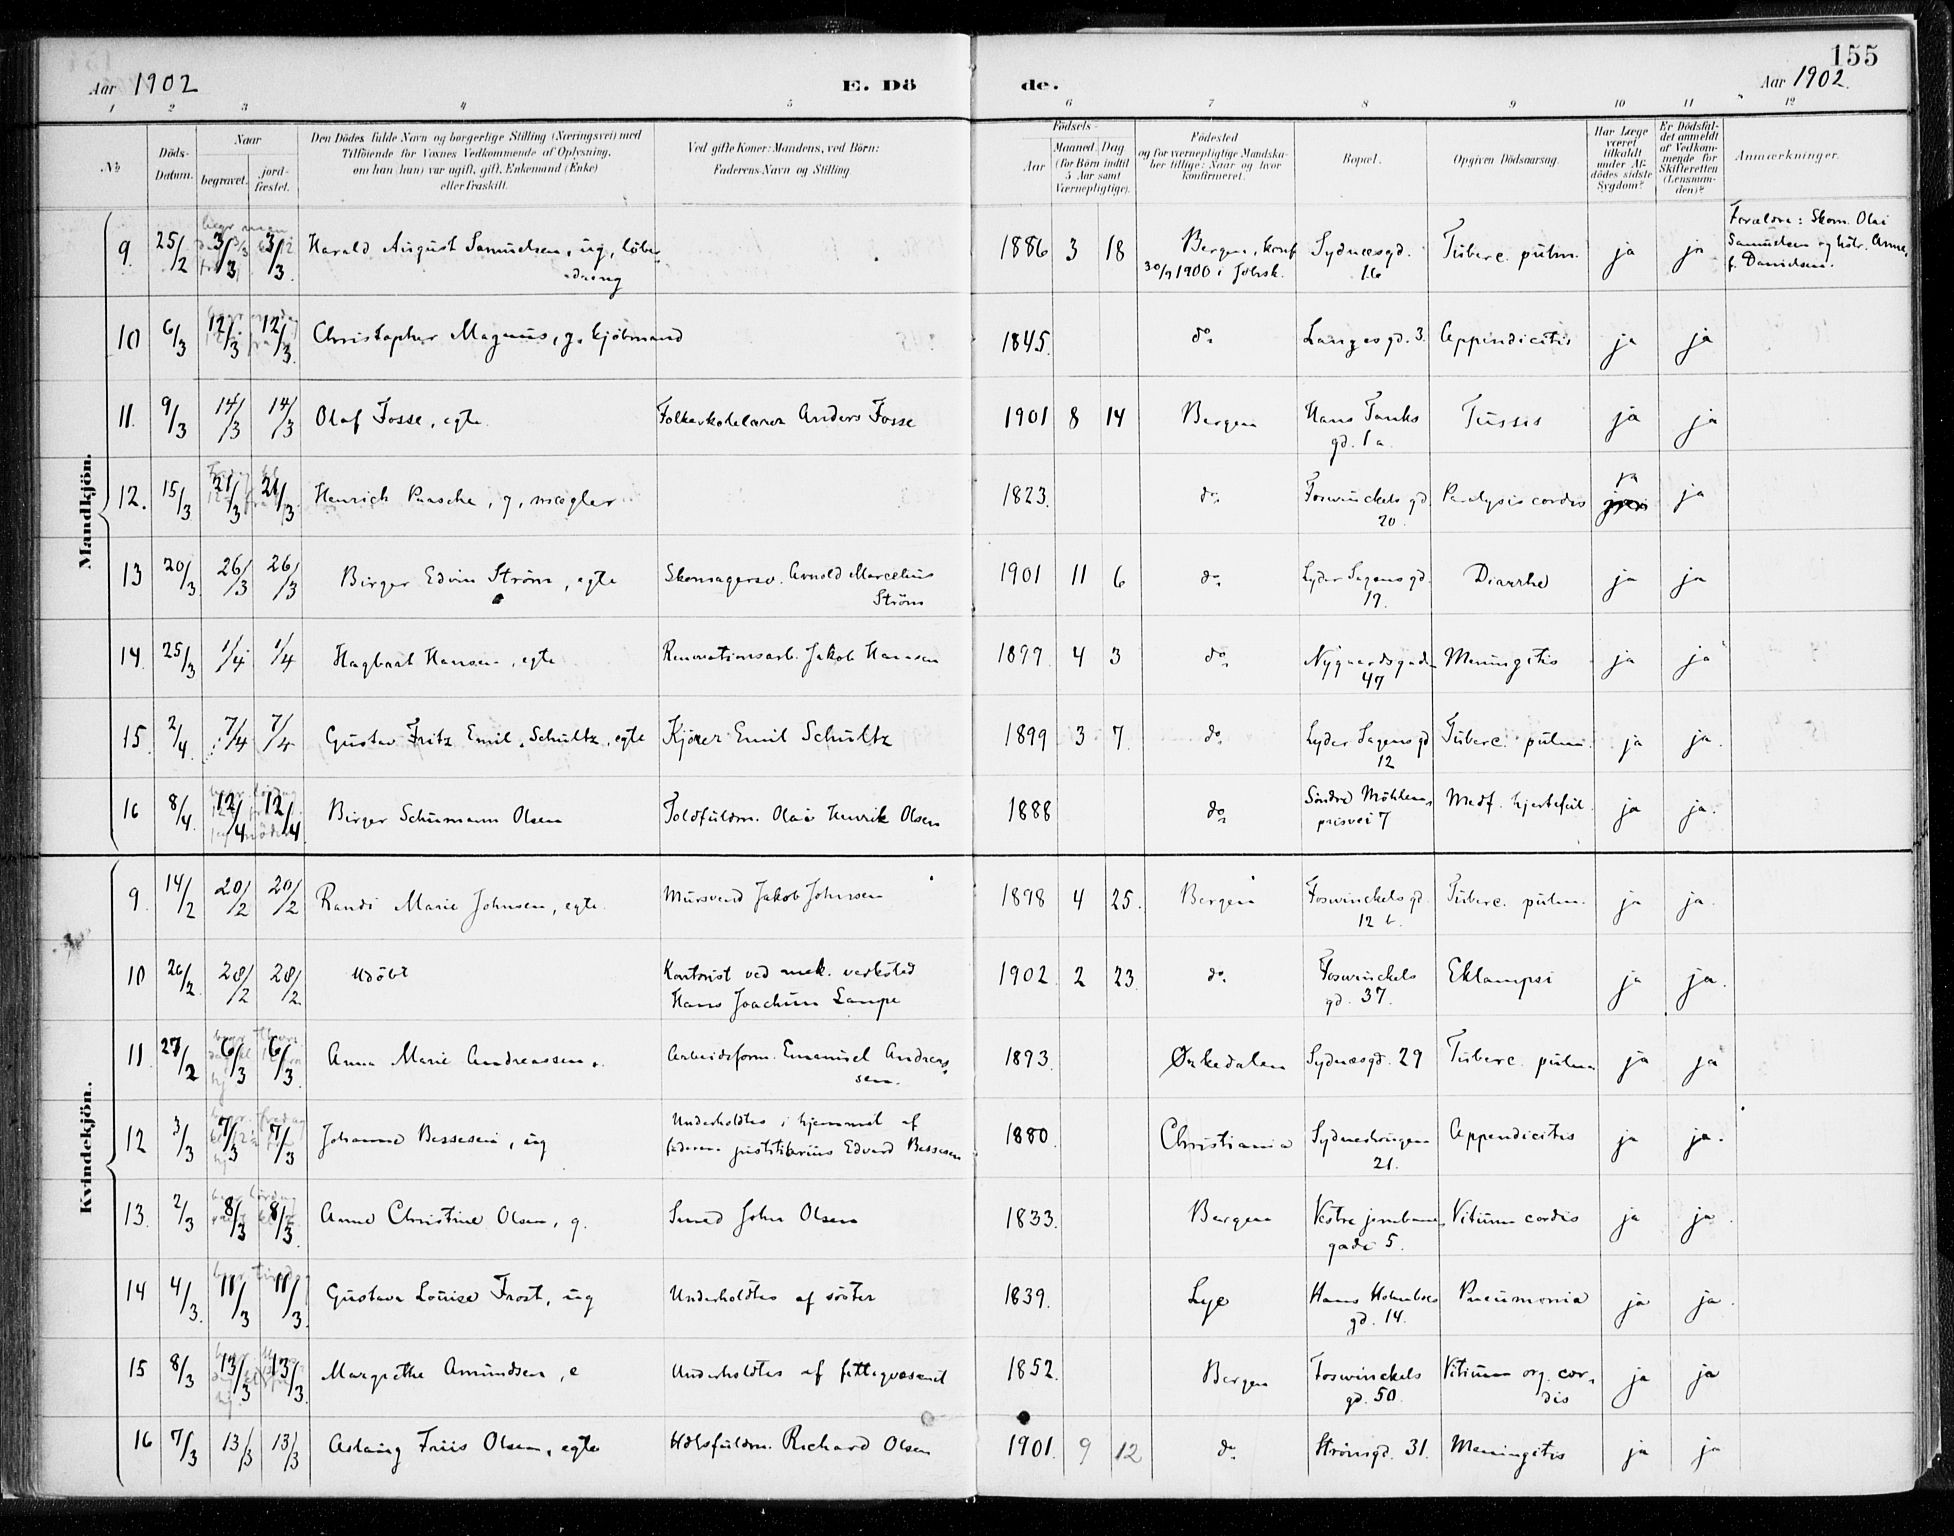 155
Aar 1902
E. Dö
de.
Aar 1902.
1 2 3 4 5 6 7 8 9 10 11 12
No
Döds-Datum.
Naar
begravet.
jordfæstet.
Den Dödes fulde Navn og borgerlige Stilling (Næringsvei) med
Tilföiende for Voxnes Vedkommende af Oplysning,
om han (hun) var ugift, gift, Enkemand (Enke)
eller fraskilt.
Ved gifte Koner: Mandens, ved Börn:
Faderens Navn og Stilling.
Födsels-
Aar
Maaned. Dag
(for Börn indtil
5 Aar samt
Værnepligtige).
Födested
og for værnepligtige Mandskaber tillige: Naar og hvor
konfirmeret.
Bopæl.
Opgiven Dödsaarsag.
Har Læge
været
tilkaldt
under Afdödes sidste
Sygdom?
Er Dödsfaldet anmeldt
af Vedkommende for
Skifteretten
(Lensmanden)?
Anmærkninger.
Mandkjön.
9. 25/2 3/3 3/3. Harald August Samuelsen, ug, løbedreng 1886 3 18 Bergen, konf. 30/9 1900 i Johsk. Sydnæsgd. 16 Tuberc. pulm. ja ja Forældre: Skom. Olai Samuelsen og hstr. Anne, f. Danielsen.
10 6/3 12/3 12/3. Christopher Magnus, g. kjöbmand 1845. do. Langesgd. 3. Appendicitis ja ja
11. 9/3 14/3 14/3 Olaf Fosse, egte. Folkeskolelærer Anders Fosse 1901 8 14 Bergen Hans Tanks gd. 1a. Tussis ja ja
12. 15/3 21/3 21/3. Henrich Paasche, g, mægler 1823. do Foswinckels gd. 20. Paralysis cordis ja ja
13 20/3. 26/3 26/3 Birger Edvin Ström, egte Skomagersv. Arnold Marcelius Ström 1901 11 6 do. Lyder Sagens gd. 19. Diarrhe ja ja
14. 25/3 1/4 1/4 Hagbart Hansen, egte Renovationsarb. Jakob Hansen 1899. 4 3 do. Nygaardsgaden 47 Meningitis ja ja
15. 2/4. 7/4 7/4 Gustav Fritz Emil Schultz, egte Kjører Emil Schultz 1899 3 7. do. Lyder Sagens gd 12 Tuberc. pulm. ja ja.
16 8/4. 12/4 12/4. Birger Schumann Olsen Toldfuldm. Olai Henrik Olsen 1888 do. Söndre Möhlenprisvei 7 Medf. hjertefeil. ja ja.
Kvindekjön.
9. 14/2 20/2 20/2 Randi Marie Johnsen, egte. Mursvend Jakob Johnsen 1898 4 25. Bergen Foswinckels gd. 12 b. Tuberc. pulm. ja ja.
10 26/2. 28/2 28/2. Udöbt Kontorist ved mek. verksted Hans Joachim Lampe 1902. 2 23. do. Foswinckels gd. 37. Eklampsi ja ja.
11. 27/2 6/3 6/3. Anna Marie Andreassen. Arbeidsform. Emanuel Andreassen. 1893. Ørkedalen Sydnæsgd. 29 Tuberc. pulm. ja ja
12 3/3 7/3 7/3 Johanne Bessesen, ug Underholdtes i hjemmet af faderen justitiarius Edvard Bessesen 1880. Christiania Sydneshaugen 21. Appendicitis ja ja.
13. 2/3 8/3 8/3. Anne Christine Olsen, g. Smed John Olsen 1833. Bergen Vestre jernbanegade 5. Vitium cordis ja ja.
14 4/3. 11/3 11/3. Gustava Louise Frost, ug Underholdtes af söster 1839. Lye Hans Holmboes gd. 14. Pneumonia ja ja.
15 8/3 13/3 13/3. Margrethe Amundsen, e Underholdtes af fattigvæsenet 1852. Bergen Foswinckels gd. 50. Vitium org. cordis ja ja
16 7/3 13/3 13/3 Aslaug Friis Olsen, egte Hdlsfuldm. Richard Olsen 1901. 9 12 do. Strömgd. 31. Meningitis ja ja